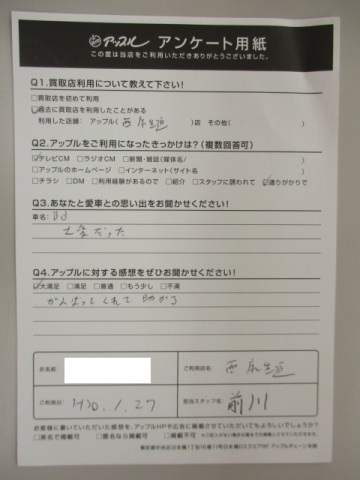 アップル アンケート用紙
この度は当店をご利用いただきありがとうございました。
Q1.買取店利用について教えて下さい!
□買取店を初めて利用
☑過去に買取店を利用したことがある
利用した店舗: アップル( )店 その他( )
Q2.アップルをご利用になったきっかけは?(複数回答可)
☑テレビCM □ラジオCM □新聞・雑誌(媒体名/ )
□アップルのホームページ □インターネット(サイト名 )
□チラシ □DM □利用経験があるので □紹介 □スタッフに誘われて ☑通りがかりで
Q3.あなたと愛車との思い出をお聞かせください!
車名:
だった
Q4.アップルに対する感想をぜひお聞かせください!
☑大満足 □満足 □普通 □もう少し □不満
がんばってくれて助かる
お名前
ご利用店名
ご利用日 H30.1.27
担当スタッフ名 前川
お客様に書いていただいた感想を、アップルHPや広告に掲載させていただいてもよろしいでしょうか?
□実名で掲載可 □匿名なら掲載可 □掲載不可